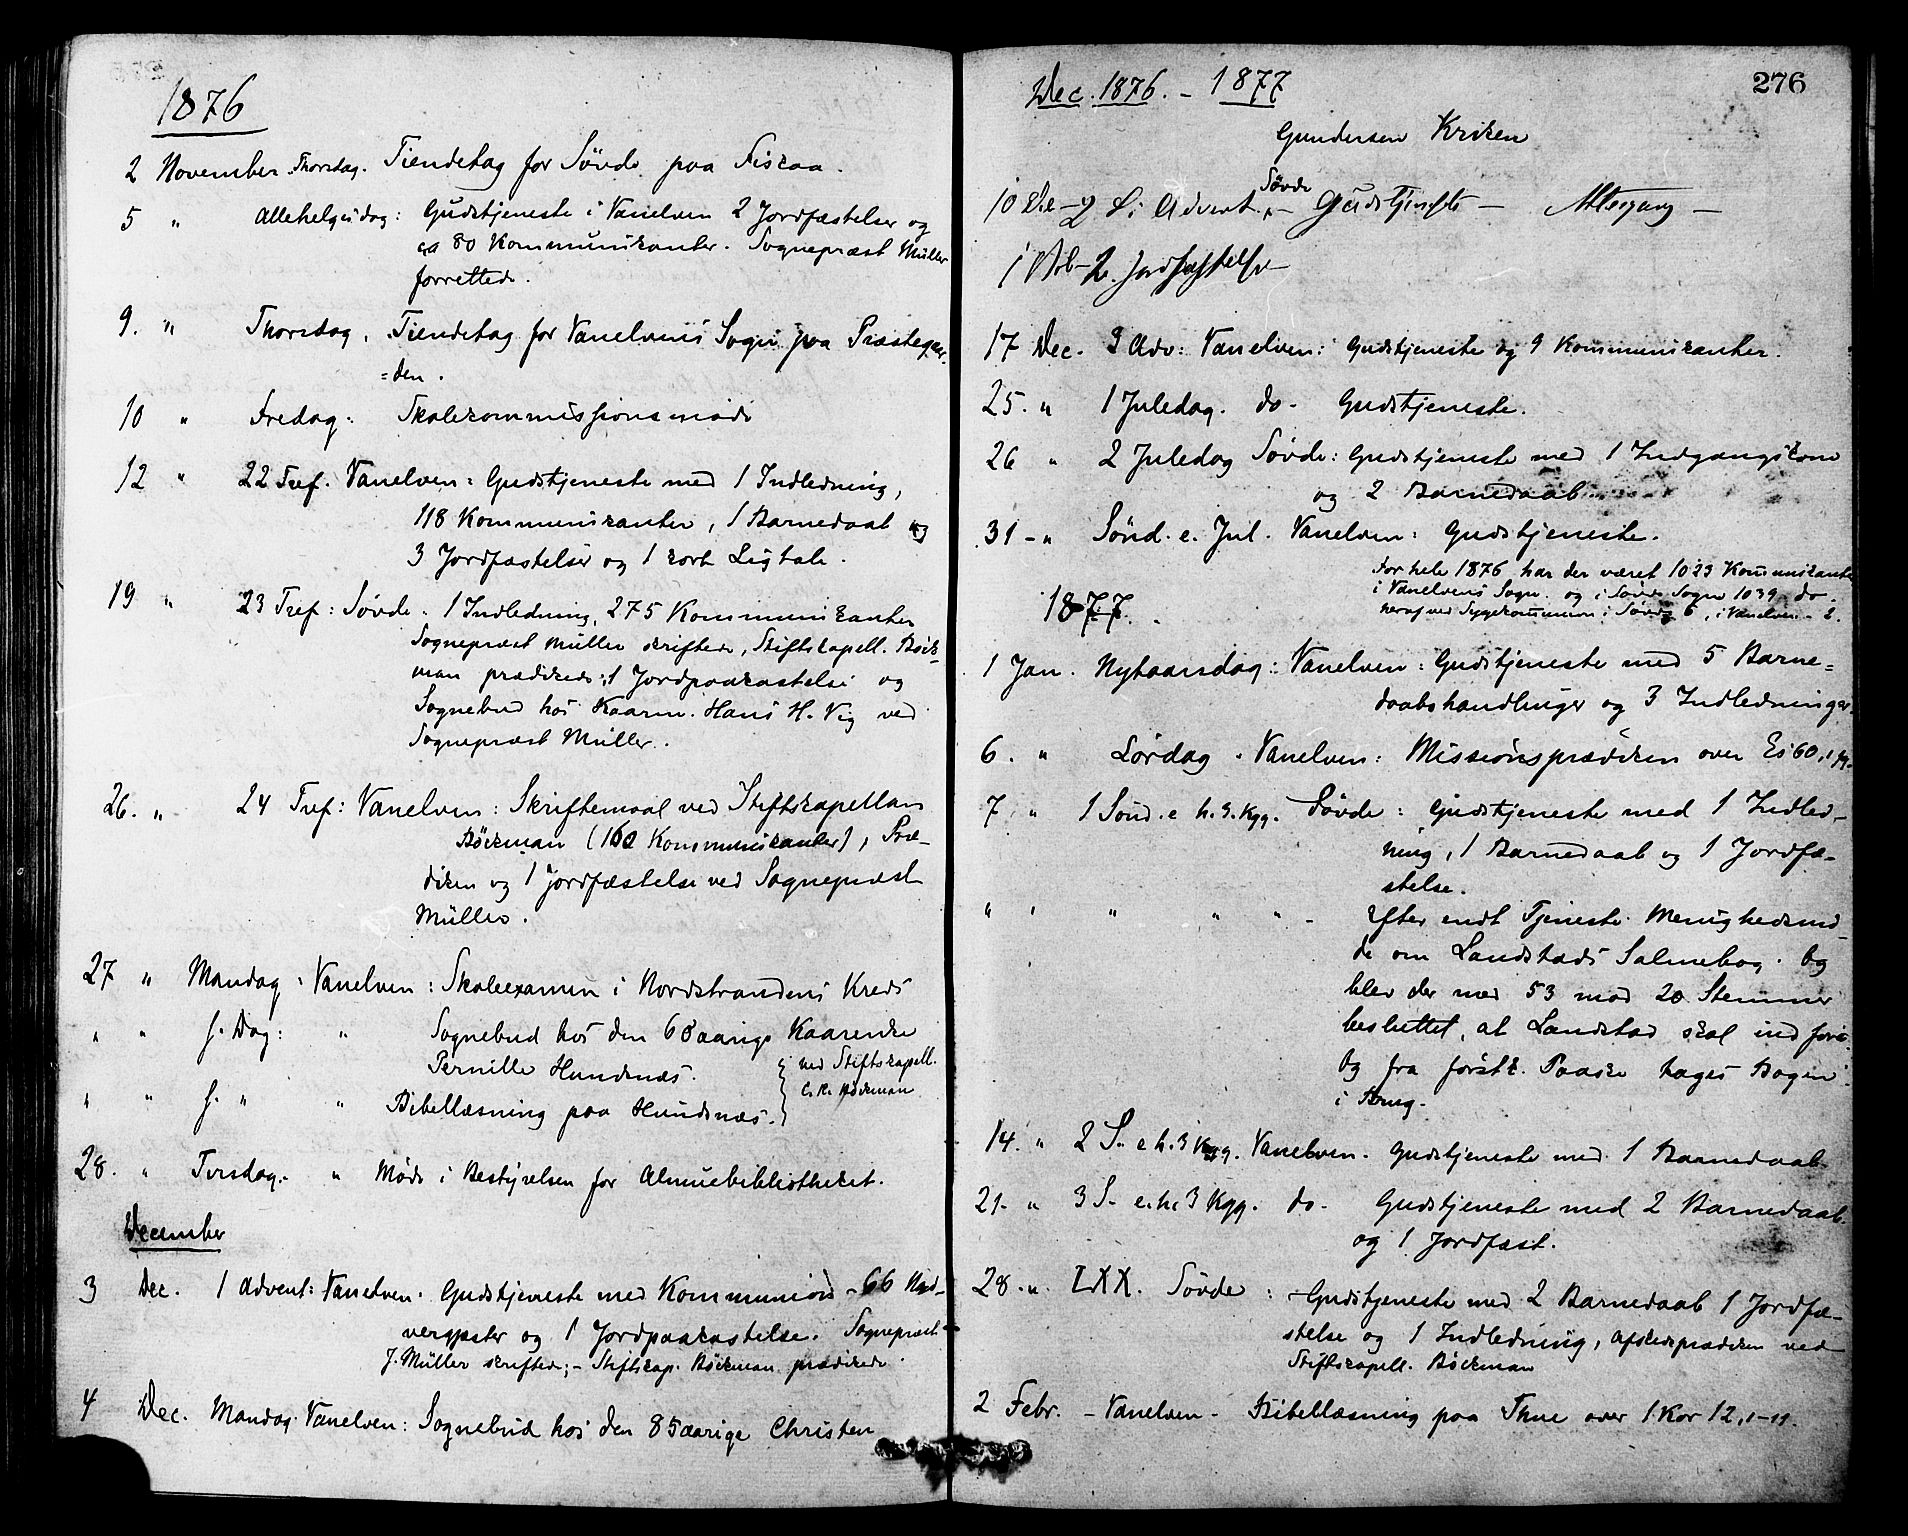 1876
2 November Thorsdag. Tiendetag for Søvde paa Fiskaa.
5 " Allehelgisdag: Gudstjeneste i Vanelven 2 Jordfæstelser og
ca 80 Kommunikanter. Sognepræst Müller
forrettede.
9. " Thorsdag, Tiendetag for Vanelvens Sogn paa Præstegaar-
=den.
10 " Fredag: Skolekommissionsmøde
12 " 22 Tref. Vanelven: Gudstjeneste med 1 Indledning,
118 Kommunikanter, 1 Barnedaab og
3 Jordfæstelser og 1 kort Ligtale.
19 " 23 Tref: Søvde. 1 Indledning, 275 Kommunikanter
Sognepræst Müller skriftede, Stiftskapell. Böck-
man prædikede; 1 Jordpaakastelse og
Sognebud hos Kaarm. Hans H. Vig ved
Sognepræst Müller.
26. " 24 Tref: Vanelven: Skriftemaal ved Stiftskapellan
Böckman (160 Kommunikanter), Præ-
diken og 1 Jordfæstelse ved Sognepræst
Müller.
27 " Mandag: Vanelven: Skoleexamen i Nordstrandens Kreds
" " s. Dag: " Sognebud hos den 68aarige Kaarenke
Pernille Hundsnæs.
ved Stiftskapell.
C. R. Böckman
" " s. " " Bibellæsning paa Hundsnæs.
28. " Tirsdag. " Møde i Bestyrelsen for Almuebibliotheket.
December
3 Dec. 1 Advent: Vanelven. Gudstjeneste med Kommunion - 66 Nad-
vergjester og 1 Jordpaakastelse. Sognepræst
J. Müller skriftede; - Stiftskap. Böckman prædikede.
4 Dec. Mandag. Vanelven: Sognebud hos den 85aarige Christen
Dec. 1876. - 1877
276
Gundersen Kriken
Søvde
10 De - 2 S. i Advent. - Gudstjeneste - Altergang -
1 Bb - 2. Jordfæstelse -
17 Dec. 3 Adv: Vanelven: Gudstjeneste og 9 Kommunikanter.
25. " 1 Juledag. do. Gudstjeneste.
26 " 2 Juledag Søvde: Gudstjeneste med 1 Indgangskone
og 2 Barnedaab
31 - " Sønd. e. Jul. Vanelven: Gudstjeneste.
For hele 1876 har der været 1023 Kommunikanter
i Vanelvens Sogn. og i Søvde Sogn 1039 do.
heraf ved Sygekommunion i Søvde 6, i Vanelven - 2.
1877.
1 Jan. Nytaarsdag: Vanelven: Gudstjeneste med 5 Barne=
daabshandlinger og 3 Indledninger.
6. " Lørdag. Vanelven: Missionsprædiken over Es 60, 1 fg.
7 " 1 Sønd. e h. 3. Kgg. Søvde: Gudstjeneste med 1 Indled-
ning, 1 Barnedaab og 1 Jordfæ-
stelse.
" " " " " - Efter endt Tjeneste Menighedsmø-
de om Landstads Salmebog. Og
blev der med 53 mod 20 Stemmer
besluttet, at Landstad skal indføres.
Og fra førstk. Paaske tages Bogen
i Brug.
14. " 2 S. e h. 3 Kgg. Vanelven. Gudstjeneste med 1 Barnedaab.
21. " 3 S. e. h. 3 Kgg. do. Gudstjeneste med 2 Barnedaab
og 1 Jordfæst.
28. " LXX. Søvde: Gudstjeneste med 2 Barnedaab 1 Jordfæ-
stelse og 1 Indledning, Afskedsprædiken ved
Stiftskapell. Böckman
2 Febr. - Vanelven - Bibellæsning paa Thue over 1. Kor 12, 1-11.